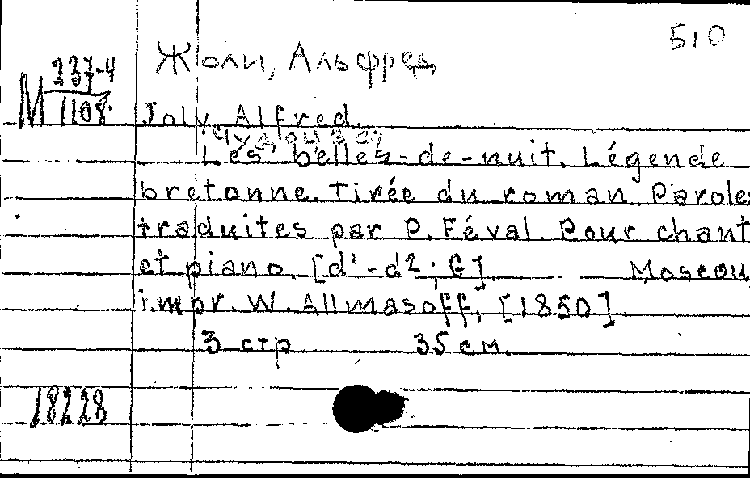 510
Жоли, Альфред
М 237-4
1108.
Joly, Alfred.
Les belles-de-nuit. Légende
bretonne. Tirée du roman. Paroles
traduites par P. Féval. Pour chant
et piano. [d¹-d²; G] Moscou
impr. W. Allmasoff, [1850]
3 стр 35 см.
18228